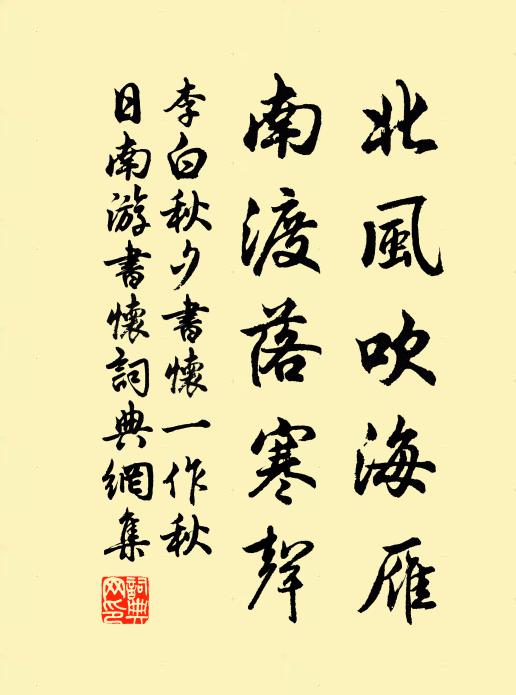 北風吹海雁
南渡落寒聲
李白秋夕書懷一作秋
日南游書懷詞典網集
詞典网印